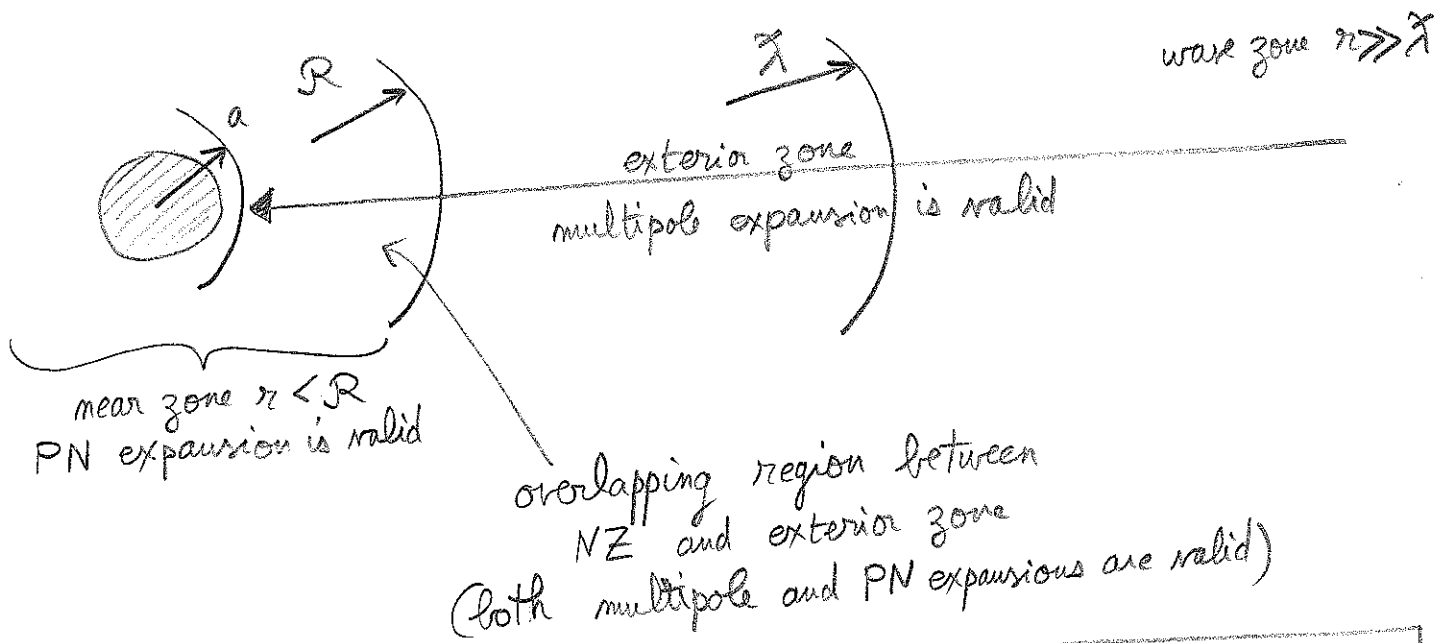 wave zone r ≫ ƛ
ƛ
R
a
exterior zone
multipole expansion is valid
near zone r < R
PN expansion is valid
overlapping region between
NZ and exterior zone
(both multipole and PN expansions are valid)